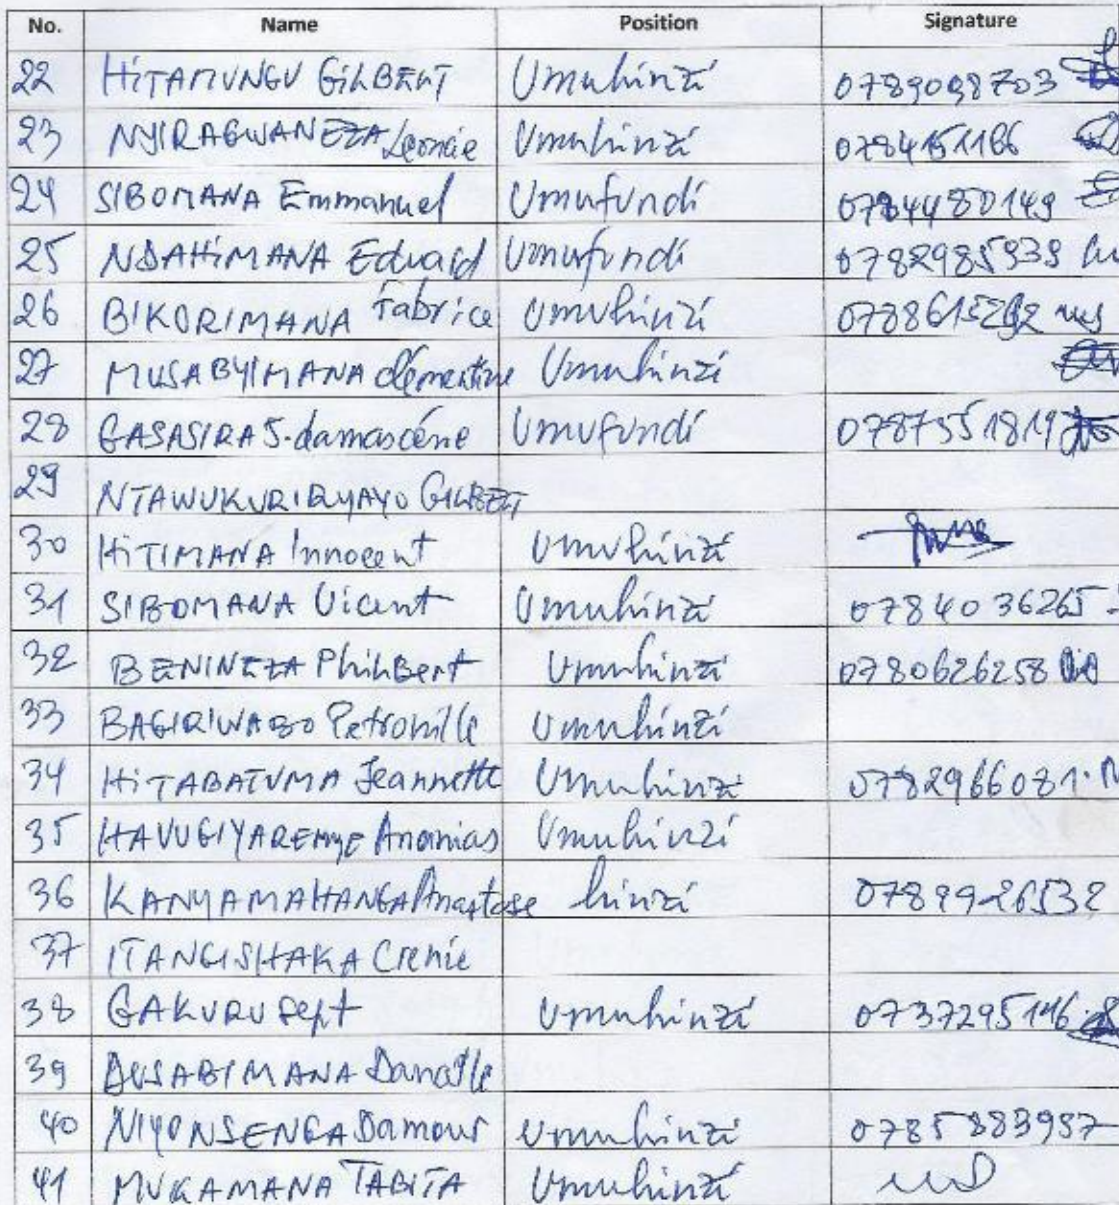 No. Name Position Signature
22 HITAMUNGU GILBERT Umuhinzi 0789098703
23 NYIRAGWANEZA Leoncie Umuhinzi 0784151166
24 SIBOMANA Emmanuel Umufundi 0784480149
25 NDAHIMANA Eduard Umufundi 0782985939
26 BIKORIMANA Fabrice Umuhinzi
27 MUSABYIMANA clémentine Umuhinzi
28 GASASIRA J.damascéne Umufundi 0787551819
29 NTAWUKURIRYAYO GILBERT
30 HITIMANA Innocent Umuhinzi
31 SIBOMANA Vicent Umuhinzi 0784036265
32 BENINEZA PhilBert Umuhinzi 0780626258
33 BAGIRIWABO Petronille Umuhinzi
34 HITABATUMA Jeannette Umuhinzi 0782966081
35 HAVUGIYAREMYE Ananias Umuhinzi
36 KANYAMAHANGA Anastase hinzi 0789926532
37 ITANGISHAKA
38 GAKURU Umuhinzi 0737295146
39 DUSABIMANA Danatle
40 NIYONSENGA Damour Umuhinzi 0785883987
41 MUKAMANA TABITA Umuhinzi